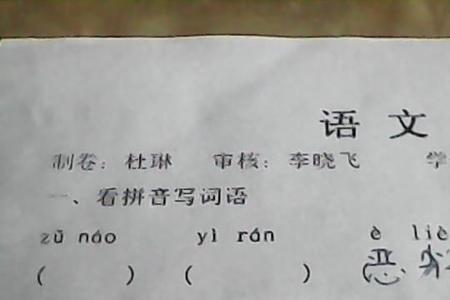 语文
制卷：杜琳 审核：李晓飞 学
一、看拼音写词语
zǔ náo yì rán è liè
( ) ( ) (恶